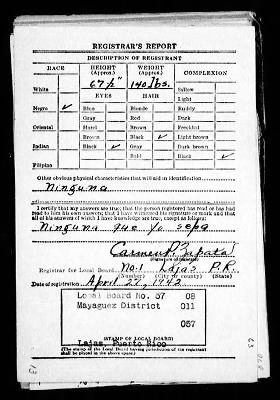 REGISTRAR'S REPORT
DESCRIPTION OF REGISTRANT
RACE
HEIGHT (Approx.)
WEIGHT (Approx.)
COMPLEXION
67½"
140 lbs.
White
EYES
HAIR
Sallow
Light
Negro ✓
Blue
Blonde
Ruddy
Gray
Red
Dark
Oriental
Hazel
Brown
Freckled
Brown
Black ✓
Light brown
Indian
Black ✓
Gray
Dark brown
Bald
Black ✓
Filipino
Other obvious physical characteristics that will aid in identification
Ninguna
I certify that my answers are true; that the person registered has read or has had
read to him his own answers; that I have witnessed his signature or mark and that
all of his answers of which I have knowledge are true, except as follows:
Ninguna que yo sepa
Carmen P. Zapata
Registrar for Local Board No. 1 Lajas P.R.
(Number) (City or county) (State)
Date of registration April 27, 1942
Local Board No. 57 08
Mayaguez District 011
057
Lajas, Puerto Rico
(STAMP OF LOCAL BOARD)
(The stamp of the Local Board having jurisdiction of the registrant
shall be placed in the above space.)